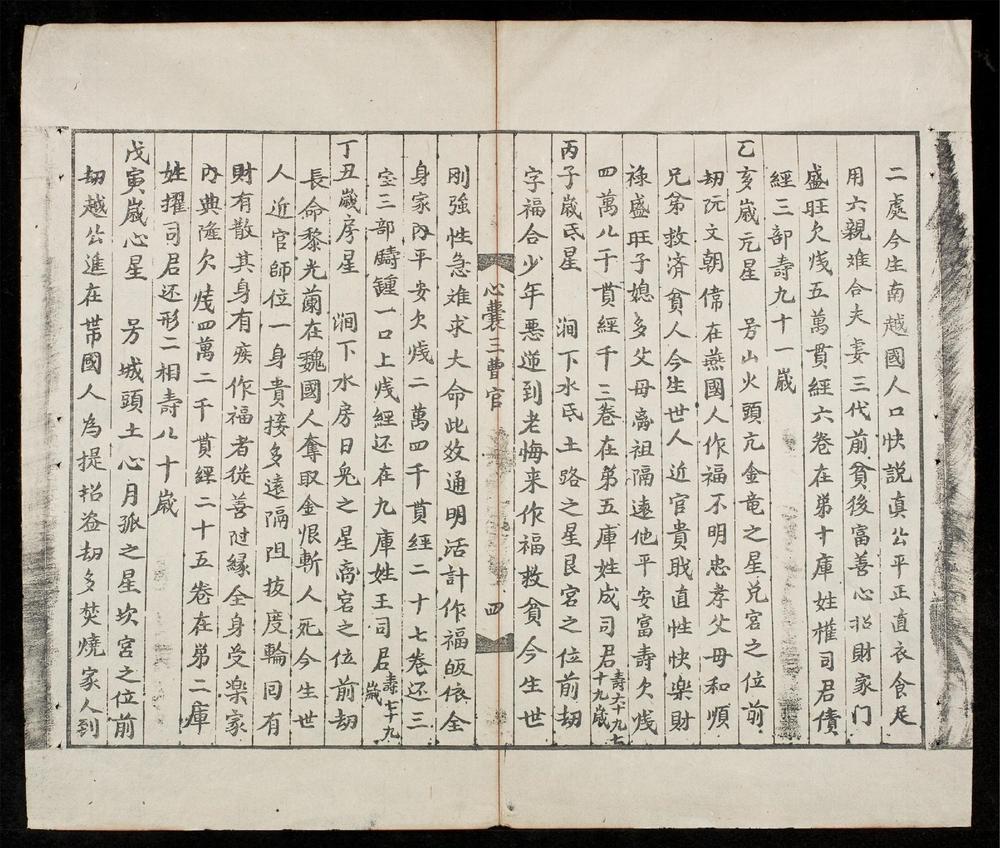 二處今生南越國人口快説眞公平正直衣食足
用六親难合夫妻三代前貧後富善心招財家門
盛旺欠戋五萬貫經六卷在弟十庫姓權司君債
經三部壽九十一嵗
乙亥嵗元星　芳山火頭亢金竜之星兑宮之位前
劫阮文朝儅在燕國人作福不明忠孝父母和順
兄弟救済貧人今生世人近官貴戢直性快楽財
禄盛旺子媳多父母离祖隔遠他平安富壽欠戋
四萬八千貫經千三卷在弟五庫姓成司君壽六十九七十九歳
丙子嵗氐星　澗下水氐土路之星艮宮之位前劫
字福合少年悪逆到老悔来作福救貧今生世
心囊三曹官　四
剛強性急难求大命此效通明活計作福皈依全
身家內平安欠戋二萬四千貫經二十七卷还三
宝三部鑄鍾一口上戋經还在九庫姓王司君壽七十九嵗
丁丑嵗房星　澗下水房日兔之星离宮之位前劫
長命黎光蘭在魏國人奪取金恨斬人死今生世
人近官師位一身貴接多遠隔阻拔度輪囘有
財有散其身有疾作福者従善隨緣全身受楽家
內典隆欠戋四萬二千貫經二十五卷在弟二庫
姓擢司君还形二相壽八十嵗
戊寅嵗心星　芳城頭土心月狐之星坎宮之位前
劫越公進在帶國人為提招盗劫多焚燒家人到